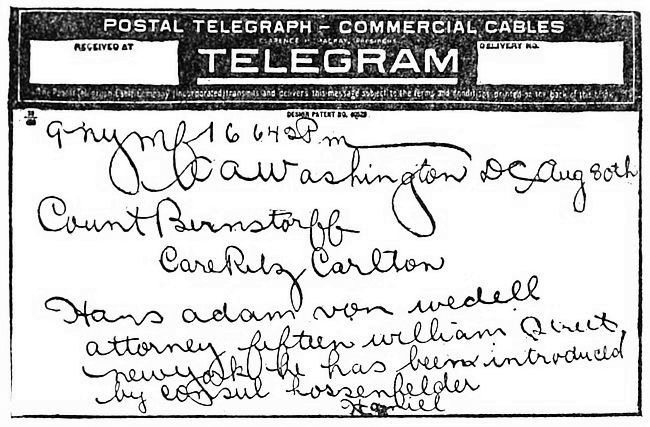 POSTAL TELEGRAPH - COMMERCIAL CABLES
RECEIVED AT
DELIVERY NO.
TELEGRAM
The Postal Telegraph-Cable Company (Incorporated) transmits and delivers this message subject to the terms and conditions printed on the back of this blank.
DESIGN PATENT NO. 40529
16 642 Pm
Washington DC Aug 30th
Count Bernstorff
Care Ritz Carlton
Hans adam von wedell
attorney fifteen william Street
newyork he has been introduced
by consul hossenfelder
Haniel